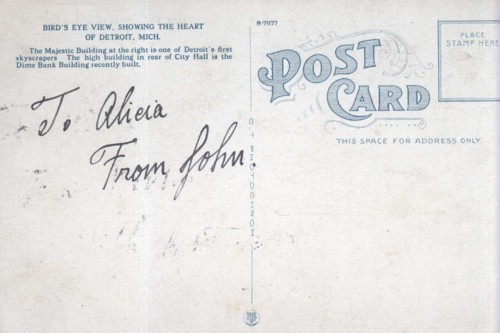 BIRD'S EYE VIEW, SHOWING THE HEART
OF DETROIT, MICH.
The Majestic Building at the right is one of Detroit's first
skyscrapers The high building in rear of City Hall is the
Dime Bank Building recently built.
To Alicia
From John.
POST
CARD
THIS SPACE FOR ADDRESS ONLY.
PLACE
STAMP HERE